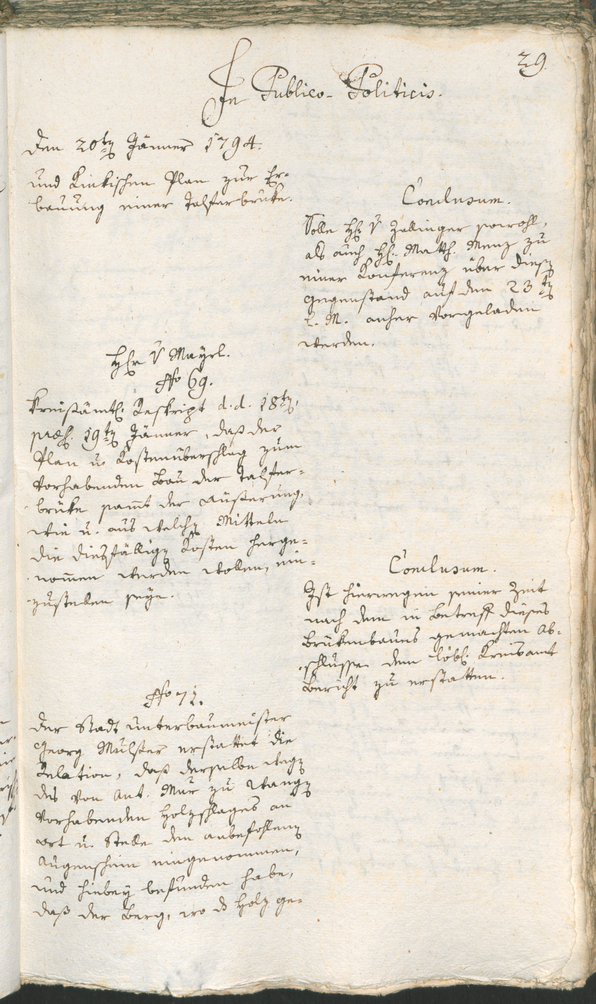 29
In Publico-Politicis.
Den 20ten Jänner 1794.
und Linkischen Plan zur Er-
bauung einer Talferbrüke.
Conclusum.
Solle H. v. Zallinger sowohl,
als auch H. Math. Menz zu
einer Konferenz über diesen
Gegenstand auf den 23ten
l. M. anher vorgeladen
werden.
H. v. Mayrl.
No 69.
Kreisämtl. Reskript d. d. 18ten,
präs. 19ten Jänner, daß der
Plan u. Kostenüberschlag zum
vorhabenden Bau der Talfer-
brüke samt der Äußerung,
wie u. aus welchen Mitteln
die diesfälligen Kosten herge-
nommen werden wollen, ein-
zusenden seye.
Conclusum.
Ist hierwegen seiner Zeit
nach dem in Betreff dieses
Brükenbaues gemachten Ab-
schlusse dem löbl. Kreisamt
Bericht zu erstatten.
No 71.
Der Stadtunterbaumeister
Georg Mülster erstattet die
Relation, daß derselbe wegen
des von Ant. Mur zu Wangen
vorhabenden Holzschlages an
Ort u. Stelle den anbefohlenen
Augenschein eingenommen,
und hiebey befunden habe,
daß der Berg, wo das Holz ge-